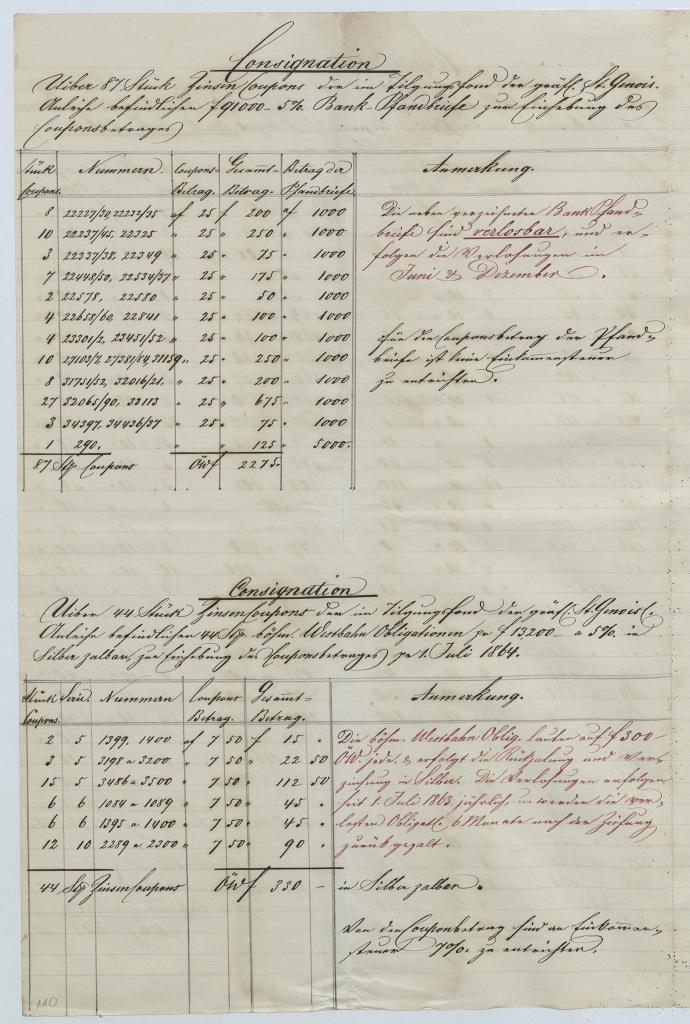 Consignation
Uiber 87 Stück Zinsen Coupons der im Tilgungsfond der gräfl. St. Genois.
Anleihe befindlichen f 91000 – 5% Bank-Pfandbriefe zur Einhebung des
Couponsbetrages
Stück Coupons. Nummern. Coupons-Betrag. Gesammt-Betrag. Betrag der Pfandbriefe Anmerkung.
8 22227/30, 22232/35 af 25 f 200 af 1000
10 22237/45, 22325 " 25 " 250 " 1000
3 22337/38, 22349 " 25 " 75 " 1000
7 22448/50, 22534/37 " 25 " 175 " 1000
2 22578, 22580 " 25 " 50 " 1000
4 22658/60, 22841 " 25 " 100 " 1000
4 23301/2, 23451/52 " 25 " 100 " 1000
10 27103/7, 27381/84, 31159 " 25 " 250 " 1000
8 31751/52, 32016/21, " 25 " 200 " 1000
27 32065/90, 33113 " 25 " 675 " 1000
3 34397, 34436/37 " 25 " 75 " 1000
1 290. " " 125 " 5000.
87 Stg Coupons ÖW f 2275.
Die neben verzeichneten Bank Pfand-
briefe sind verlosbar, und er-
folgen die Verlosungen im
Juni & Dezember.
Für die Couponsbetrag der Pfand-
briefe ist keine Einkommensteuer
zu entrichten.
Consignation
Uiber 44 Stück Zinsen Coupons der im Tilgungsfond der gräfl. St. Genois
Anleihe befindlichen 44 Stg. böhm. Westbahn Obligationen pr f 13200 – a 5%. in
Silber zalbar, zur Einhebung des Couponsbetrages pr 1. Juli 1864.
Stück Coupons. Serie. Nummern Coupons Betrag. Gesammt-Betrag. Anmerkung.
2 5 1399, 1400 af 7 50 f 15 .
3 5 3198 a 3200 " 7 50 " 22 50
15 5 3486 a 3500 " 7 50 " 112 50
6 6 1084 a 1089 " 7 50 " 45 .
6 6 1395 a 1400 " 7 50 " 45 .
12 10 2289 a 2300 " 7 50 " 90 .
44 Stg Zinsen Coupons ÖW f 330 –
Die böhm. Westbahn Oblig. lauten auf f 300
ÖW. jede, & erfolgt die Rückzalung und Ver-
zinsung in Silber. Die Verlosungen erfolgen
seit 1. Juli 1863 jährlich, u. werden die ver-
losten Obligat. 6 Monate nach der Ziehung
zurückgezalt.
in Silber zalbar.
Von den Couponbetrag sind an Einkommen-
steuer 7%. zu entrichten.
110